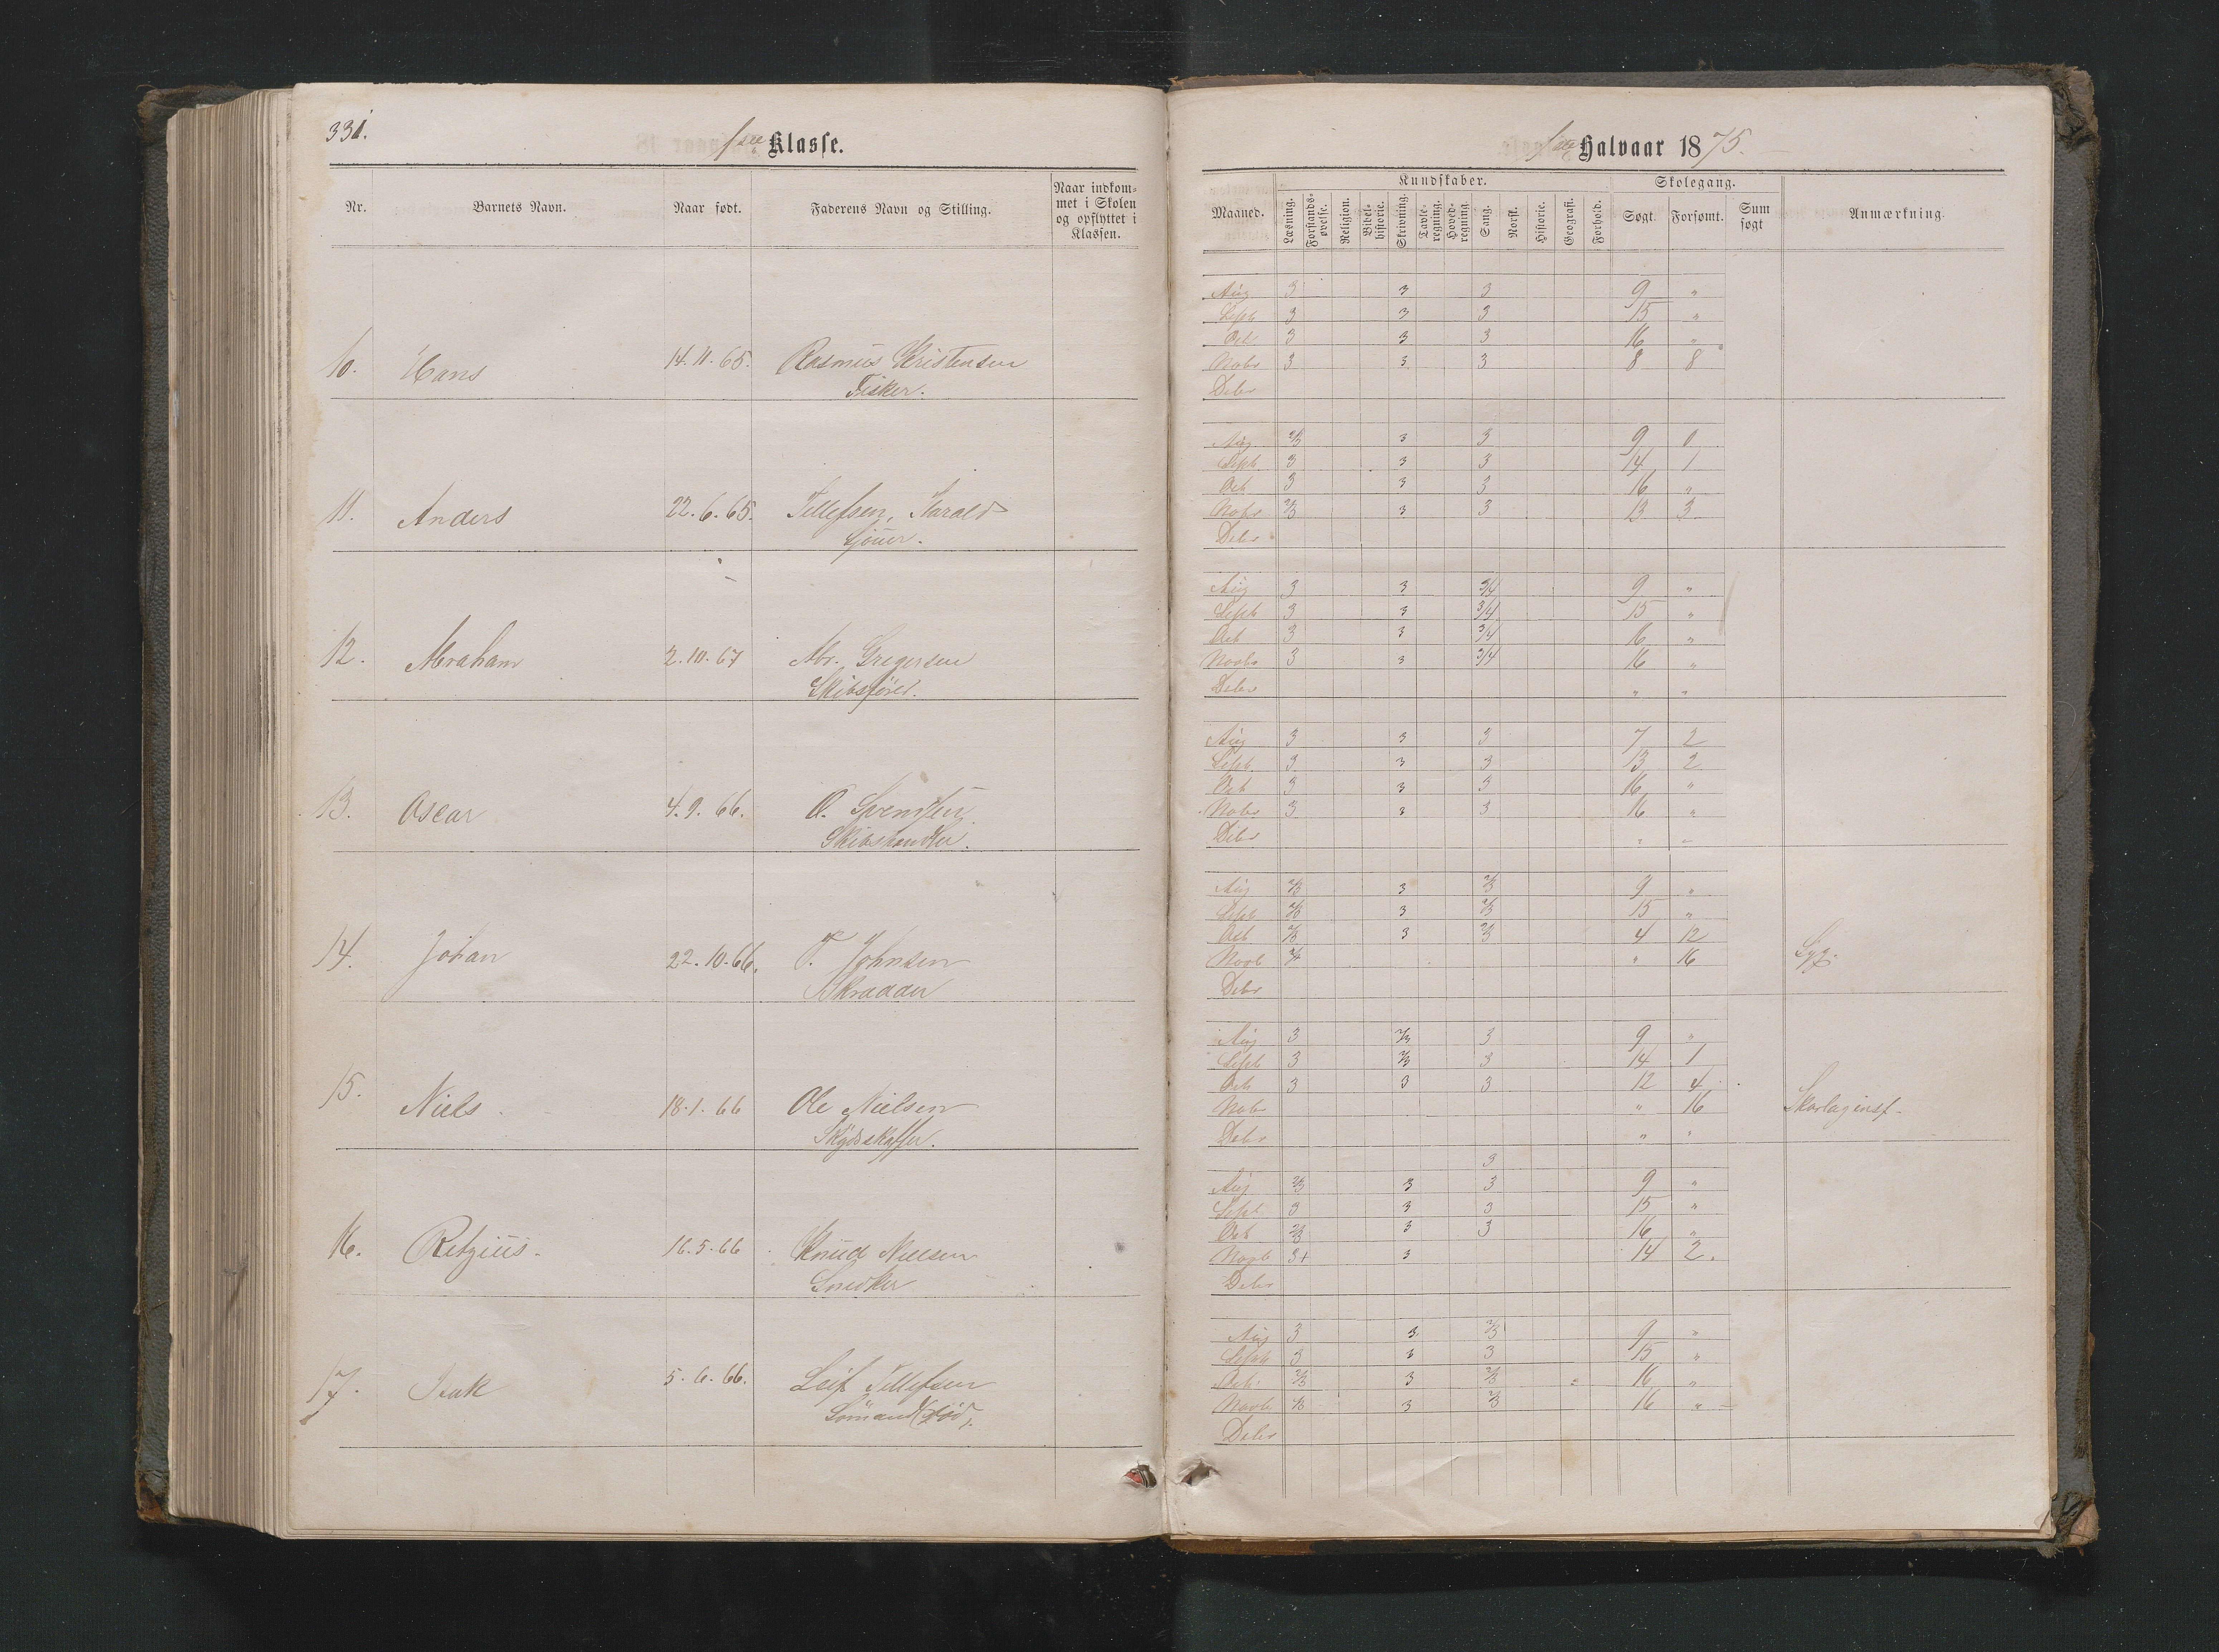 331.
1ste Klasse.
Nr. Barnets Navn. Naar født. Faderens Navn og Stilling. Naar indkommet i Skolen og opflyttet i Klassen.
10. Hans 14.11.65. Rasmus Kristensen
Fisker.
11. Anders 22.6.65. Tellefsen, Harald
Sjouer.
12. Abraham 2.10.67 Abr. Gregersen
Skibsfører.
13. Oscar 4.9.66. O. Svendsen
Skibshandler.
14. Johan 22.10.66. T. Johnsen
Skrædder
15. Niels 18.1.66 Ole Nielsen
Skydsskaffer.
16. Retzius. 16.5.66 Knud Nielsen
Snedker
17. Isak 5.6.66. Leif Tellefsen
Sømand (død).
Halvaar 1875.
Kundskaber. Skolegang.
Maaned. Læsning. Forstandsøvelse. Religion. Bibelhistorie. Skrivning. Tavleregning. Hovedregning. Sang. Norsk. Historie. Geografi. Forhold. Søgt. Forsømt. Sum søgt Anmærkning.
Aug 3 3 3 9 "
Sept 3 3 3 15 "
Oct 3 3 3 16 "
Novbr 3 3 3 8 8
Decbr
Aug 2/3 3 3 9 0
Sept 3 3 3 14 1
Oct 3 3 3 16 "
Novbr 2/3 3 3 13 3
Decbr
Aug 3 3 3/4 9 "
Sept 3 3 3/4 15 "
Oct 3 3 3/4 16 "
Novbr 3 3 3/4 16 "
Decbr " "
Aug 3 3 3 7 2
Sept 3 3 3 13 2
Oct 3 3 3 16 "
Novbr 3 3 3 16 "
Decbr " "
Aug 2/3 3 2/3 9 "
Sept 2/3 3 2/3 15 "
Oct 2/3 3 2/3 4 12
Novb " 16 Syg.
Decbr
Aug 3 2/3 3 9 "
Sept 3 2/3 3 14 1
Oct 3 3 3 12 4
Nobr " 16 Skarlaginsf.
Decbr " "
3
Aug 2/3 3 3 9 "
Sept 3 3 3 15 "
Oct 2/3 3 3 16 "
Novb 3+ 3 14 2.
Decbr
Aug 3 3 2/3 9 "
Sept 3 3 3 15 "
Oct 2/3 3 2/3 16 "
Novb 2/3 3 2/3 16 "
Decbr